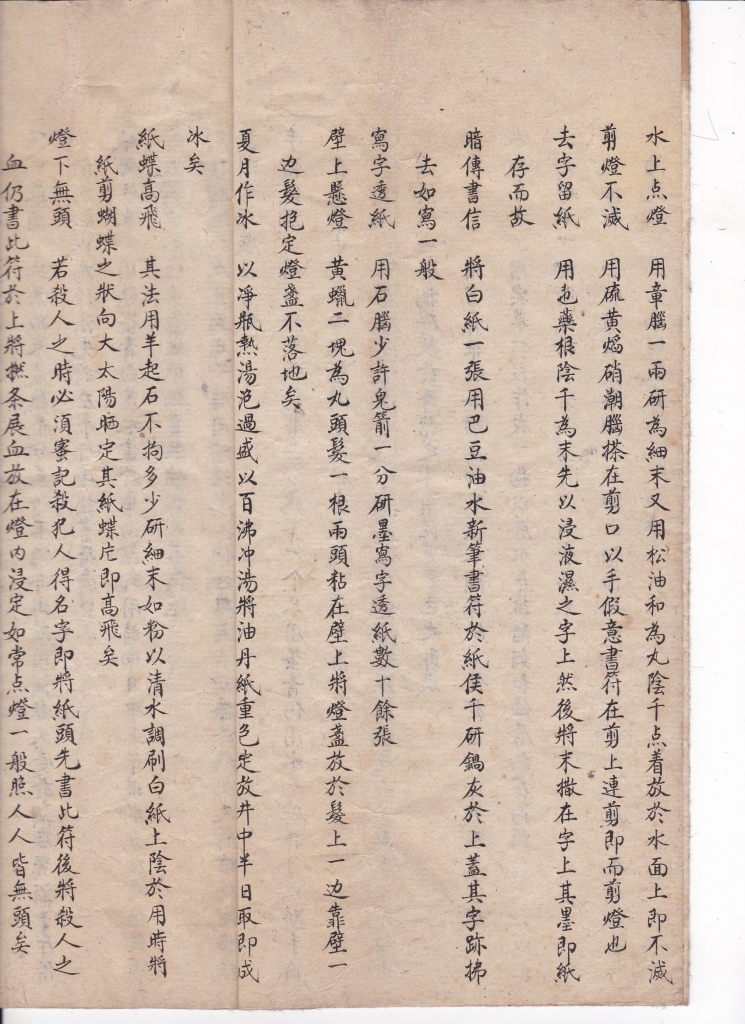 水上点燈　用章腦一兩研為細末又用松油和為丸陰干点着放於水面上即不滅
剪燈不滅　用硫黄焰硝潮腦搽在剪口以手假意書符在剪上連剪即而剪燈也
去字留紙　用瓦藥根陰干為末先以浸液濕之字上然後將末撒在字上其墨即紙
存而故
暗傳書信　將白紙一張用巴豆油水新筆書符於紙侯干研鍋灰於上蓋其字跡拂
去如寫一般
寫字透紙　用石腦少許皂箭一分研墨寫字透紙數十餘張
壁上懸燈　黄蠟二塊為丸頭髮一根兩頭粘在壁上將燈盞放於髮上一边靠壁一
边髮抱定燈盞不落地矣
夏月作冰　以淨瓶熱湯泡過盛以百沸冲湯將油丹紙重包定放井中半日取即成
冰矣
紙蝶高飛　其法用羊起石不拘多少研細末如粉以清水調刷白紙上陰於用時將
紙剪蝴蝶之狀向大太陽晒定其紙蝶庀即高飛矣
燈下無頭　若殺人之時必須蜜記殺犯人得名字即將紙頭先書此符後將殺人之
血仍書此符於上將撚条展血放在燈内浸定如常点燈一般照人人皆無頭矣